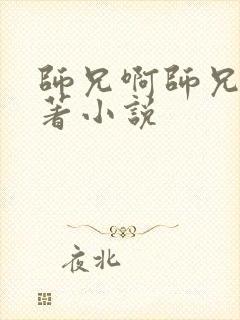 師兄啊師兄
著小説
夜北